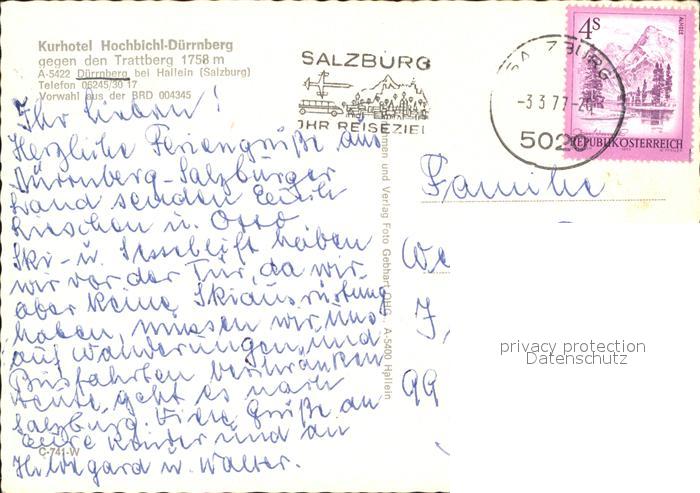 Kurhotel Hochbichl-Dürrnberg
gegen den Trattberg 1758 m
A-5422 Dürrnberg bei Hallein (Salzburg)
Telefon 06245/30 17
Vorwahl aus der BRD 004345
Ihr Lieben!
Herzliche Feriengrüße aus
Dürrnberg-Salzburger
Land senden Euch
und Otto
Ski- u. Sessellift haben
wir vor der Tür, da wir
aber keine Skiausrüstung
haben, müssen wir uns
auf Wanderungen und
Busfahrten beschränken
Heute geht es nach
Salzburg. Viele Grüße an
Eure Kinder und an
Hildegard u. Walter.
C-741-W
SALZBURG
IHR REISEZIEL
SALZBURG
-3.3.77-20
5020
4S
ALMSEE
REPUBLIK ÖSTERREICH
und Verlag Foto Gebhart OHG., A-5400 Hallein
Familie
We
J,
99
privacy protection
Datenschutz